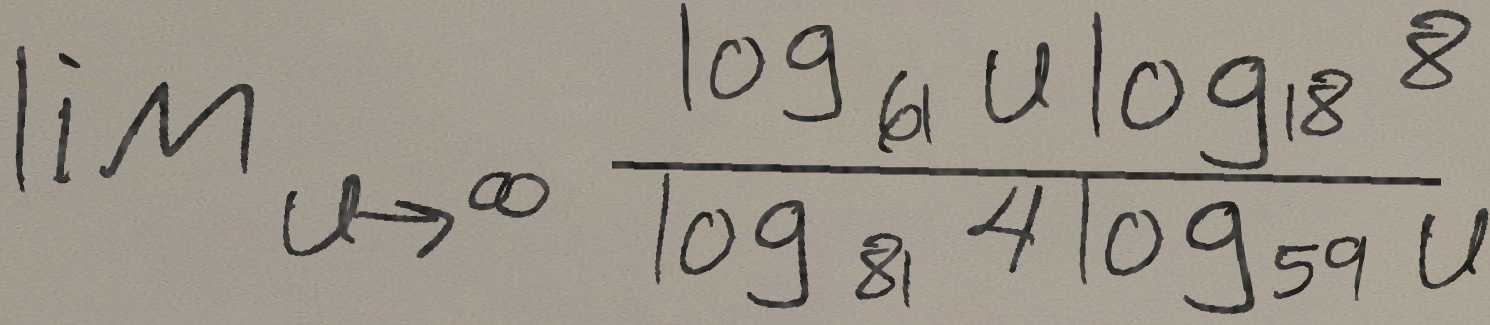 \lim_{u \to \infty} \frac{\log_{61} u \log_{18} 8}{\log_{81} 4 \log_{59} u}